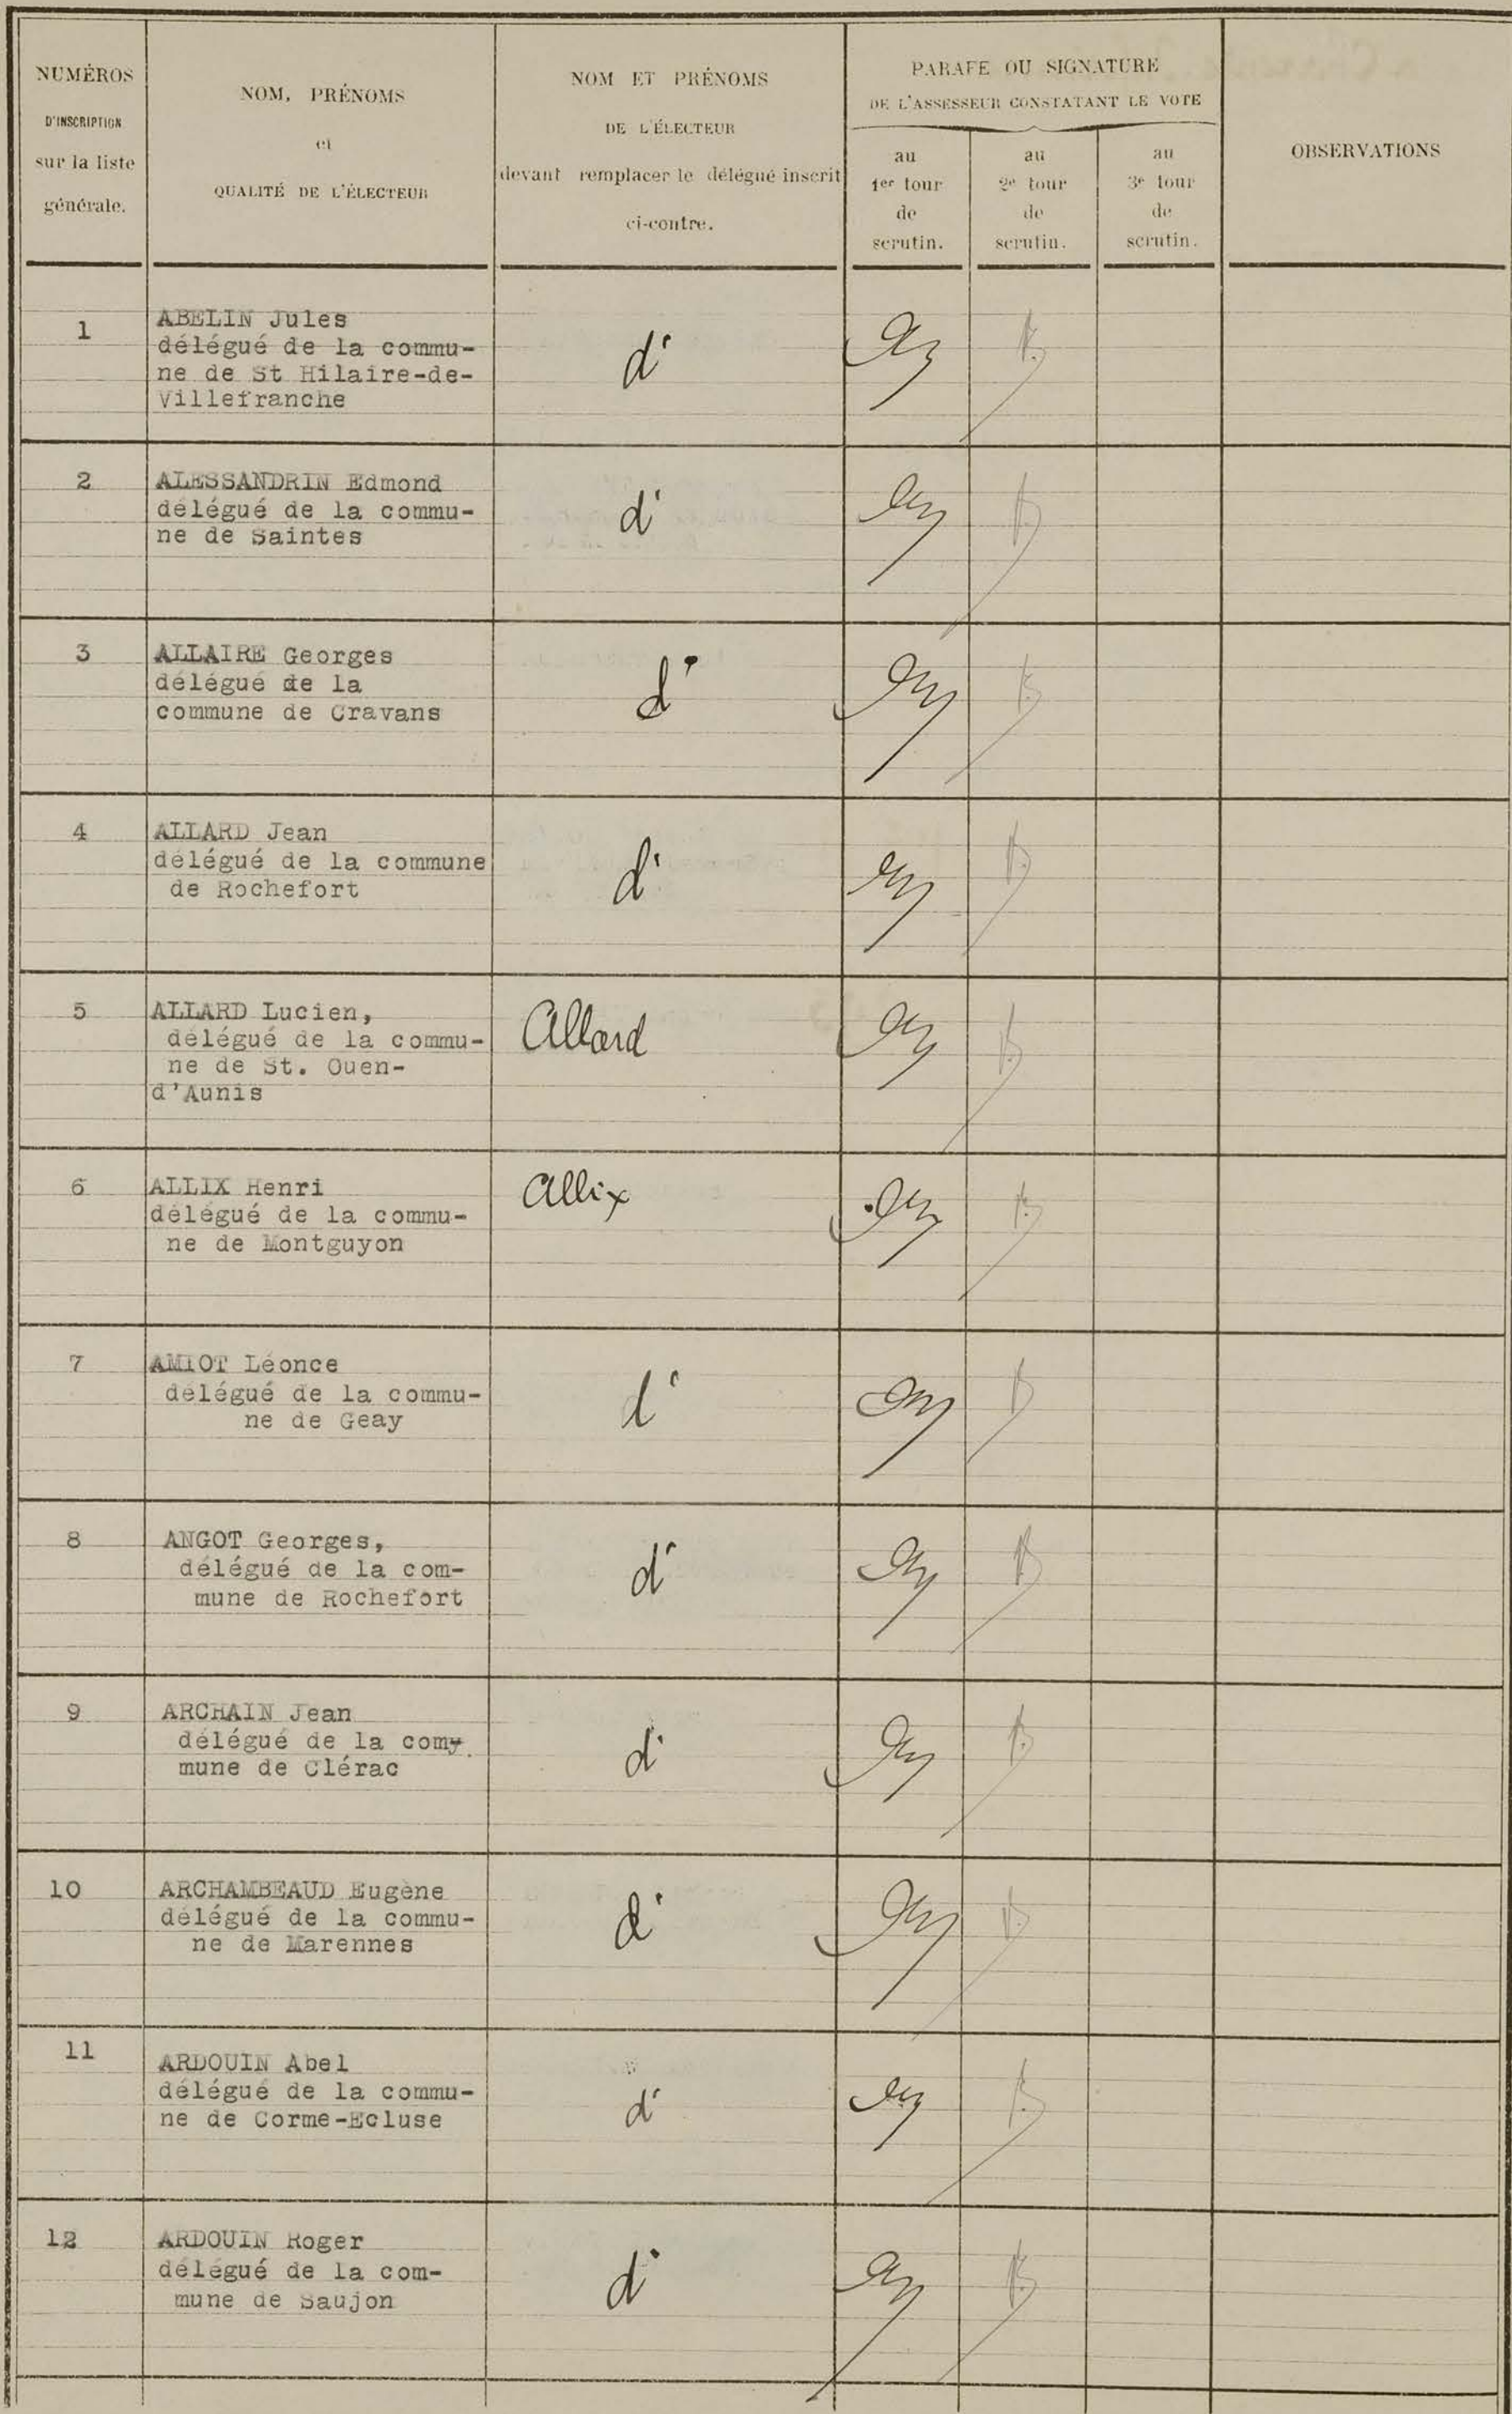 NUMÉROS
D'INSCRIPTION
sur la liste
générale.
NOM, PRÉNOMS
et
QUALITÉ DE L'ÉLECTEUR
NOM ET PRÉNOMS
DE L'ÉLECTEUR
devant remplacer le délégué inscrit
ci-contre.
PARAFE OU SIGNATURE
DE L'ASSESSEUR CONSTATANT LE VOTE
au
1er tour
de
scrutin.
au
2e tour
de
scrutin.
au
3e tour
de
scrutin.
OBSERVATIONS
1
ABELIN Jules
délégué de la commu-
ne de St Hilaire-de-
Villefranche
d°
2
ALESSANDRIN Edmond
délégué de la commu-
ne de Saintes
d°
3
ALLAIRE Georges
délégué de la
commune de Cravans
d°
4
ALLARD Jean
délégué de la commune
de Rochefort
d°
5
ALLARD Lucien,
délégué de la commu-
ne de St. Ouen-
d'Aunis
Allard
6
ALLIX Henri
délégué de la commu-
ne de Montguyon
Allix
7
AMIOT Léonce
délégué de la commu-
ne de Geay
d°
8
ANGOT Georges,
délégué de la com-
mune de Rochefort
d°
9
ARCHAIN Jean
délégué de la com-
mune de Clérac
d°
10
ARCHAMBEAUD Eugène
délégué de la commu-
ne de Marennes
d°
11
ARDOUIN Abel
délégué de la commu-
ne de Corme-Ecluse
d°
12
ARDOUIN Roger
délégué de la com-
mune de Saujon
d°